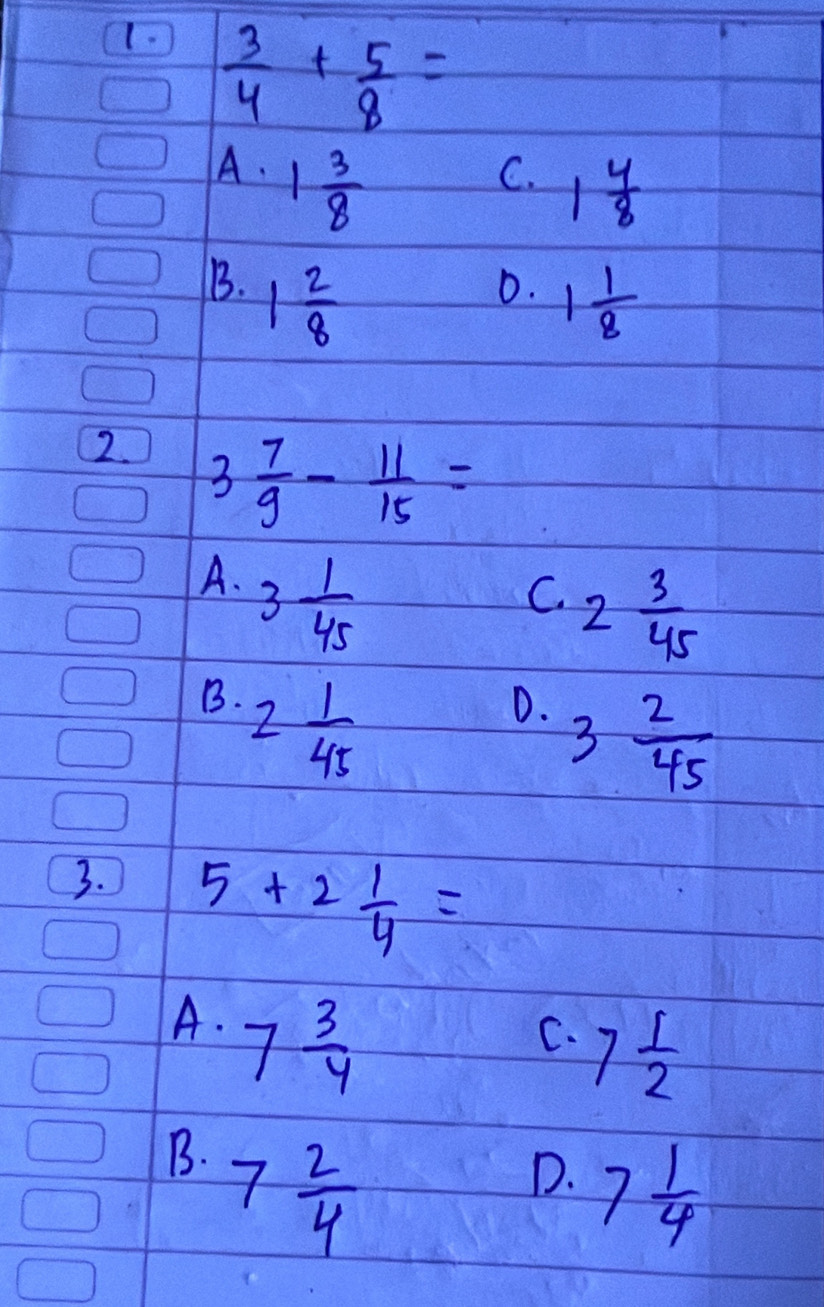 1. 3/4 + 5/8 =
A. 1 3/8 C. 1 4/8
B. 1 2/8 D. 1 1/8
2. 3 7/9 - 11/15 =
A. 3 1/45 C. 2 3/45
B. 2 1/45 D. 3 2/45
3. 5 + 2 1/4 =
A. 7 3/4 C. 7 1/2
B. 7 2/4 D. 7 1/4